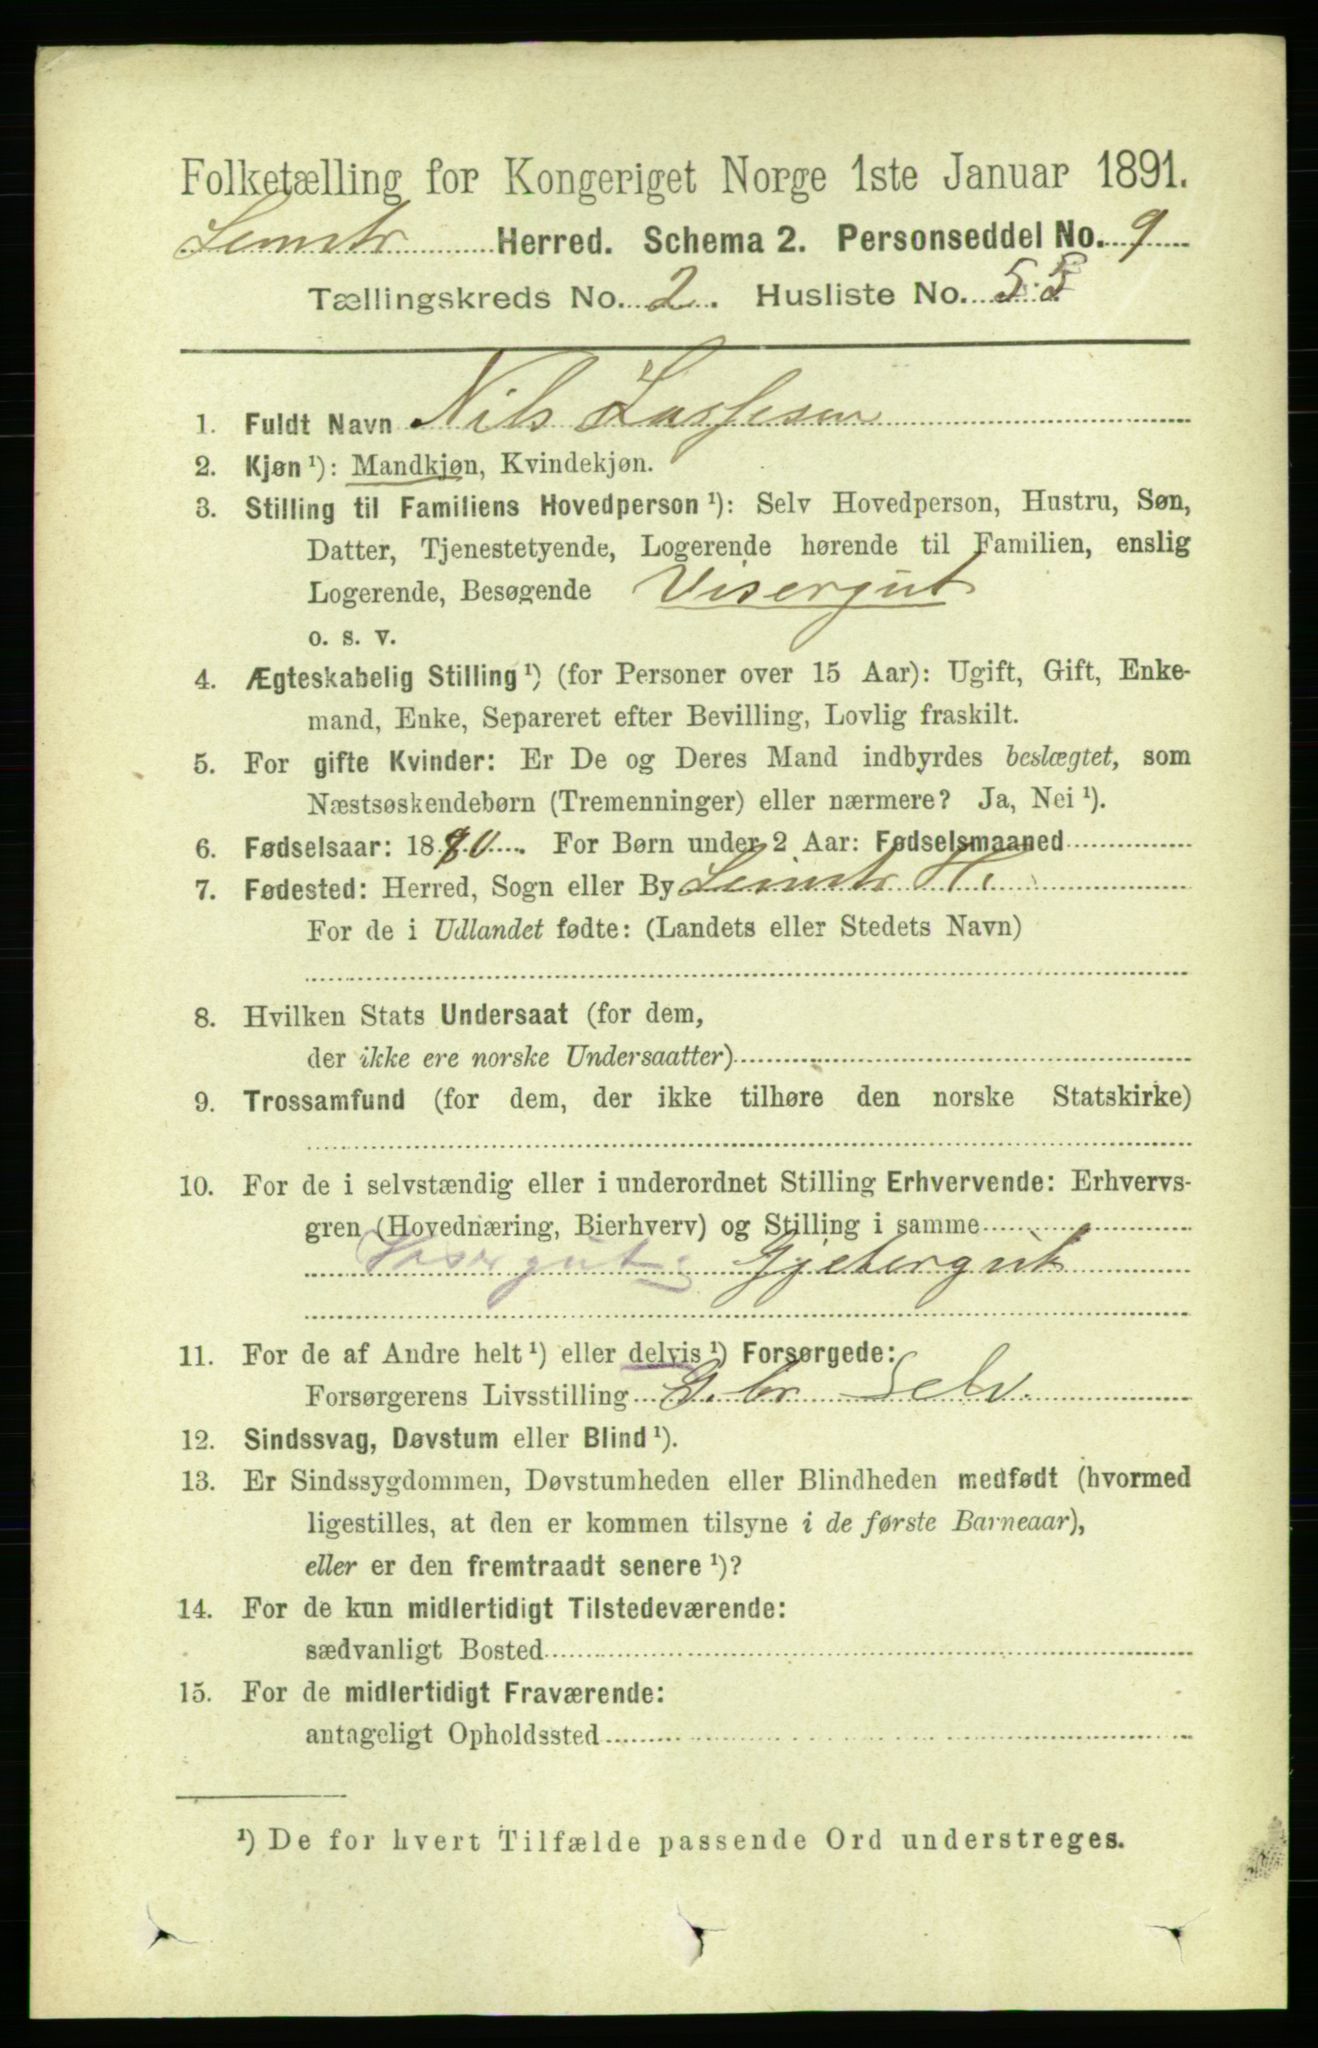 Folketælling for Kongeriget Norge 1ste Januar 1891.
Leinstr Herred. Schema 2. Personseddel No. 9
Tællingskreds No. 2. Husliste No. 55
1. Fuldt Navn Nils Lassesen
2. Kjøn ¹): Mandkjøn, Kvindekjøn.
3. Stilling til Familiens Hovedperson ¹): Selv Hovedperson, Hustru, Søn,
Datter, Tjenestetyende, Logerende hørende til Familien, enslig
Logerende, Besøgende Visergut
o. s. v.
4. Ægteskabelig Stilling ¹) (for Personer over 15 Aar): Ugift, Gift, Enke-
mand, Enke, Separeret efter Bevilling, Lovlig fraskilt.
5. For gifte Kvinder: Er De og Deres Mand indbyrdes beslægtet, som
Næstsøskendebørn (Tremenninger) eller nærmere? Ja, Nei ¹).
6. Fødselsaar: 1880. For Børn under 2 Aar: Fødselsmaaned
7. Fødested: Herred, Sogn eller By Leinstr H.
For de i Udlandet fødte: (Landets eller Stedets Navn)
8. Hvilken Stats Undersaat (for dem,
der ikke ere norske Undersaatter)
9. Trossamfund (for dem, der ikke tilhøre den norske Statskirke)
10. For de i selvstændig eller i underordnet Stilling Erhvervende: Erhvervs-
gren (Hovednæring, Bierhverv) og Stilling i samme
Visergut; Gjetergut
11. For de af Andre helt ¹) eller delvis ¹) Forsørgede:
Forsørgerens Livsstilling G.br Selv.
12. Sindssvag, Døvstum eller Blind ¹).
13. Er Sindssygdommen, Døvstumheden eller Blindheden medfødt (hvormed
ligestilles, at den er kommen tilsyne i de første Barneaar),
eller er den fremtraadt senere ¹)?
14. For de kun midlertidigt Tilstedeværende:
sædvanligt Bosted
15. For de midlertidigt Fraværende:
antageligt Opholdssted
¹) De for hvert Tilfælde passende Ord understreges.